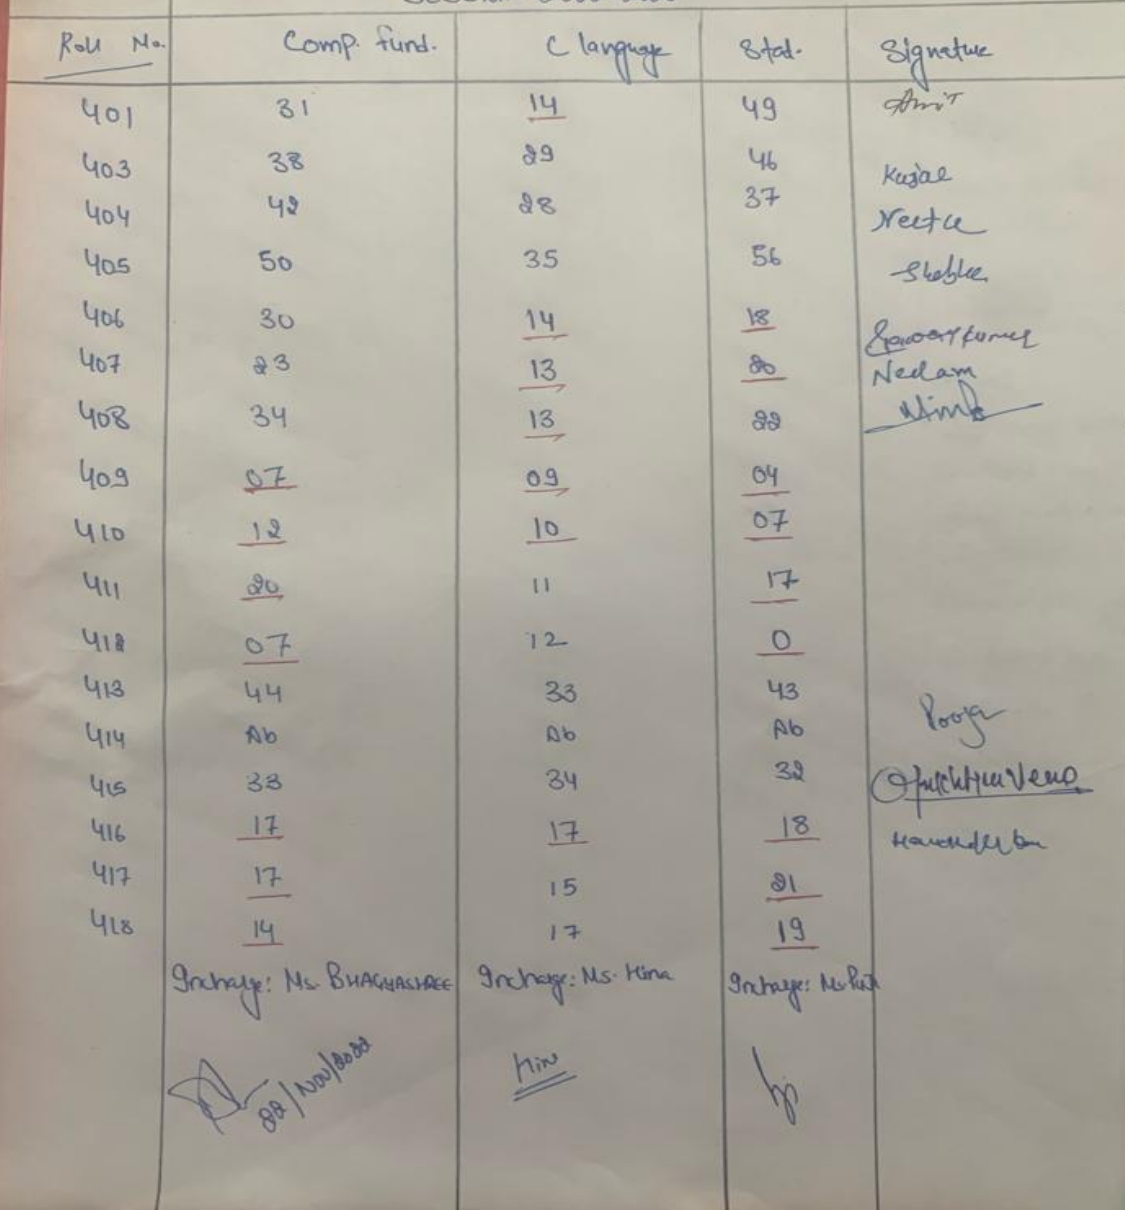 Roll No. Comp. fund. C language Stat. Signature
401 31 14 49 Amit
403 38 29 46 Kajal
404 42 28 37 Neetu
405 50 35 56
406 30 14 18
407 23 13 20 Neelam
408 34 13 22
409 07 09 04
410 12 10 07
411 20 11 17
412 07 12 0
413 44 33 43 Pooja
414 Ab Ab Ab
415 33 34 32
416 17 17 18
417 17 15 21
418 14 17 19
Incharge: Ms. BHAGYASHREE Incharge: Ms. Hina Incharge:
22/Nov/2022 Hina